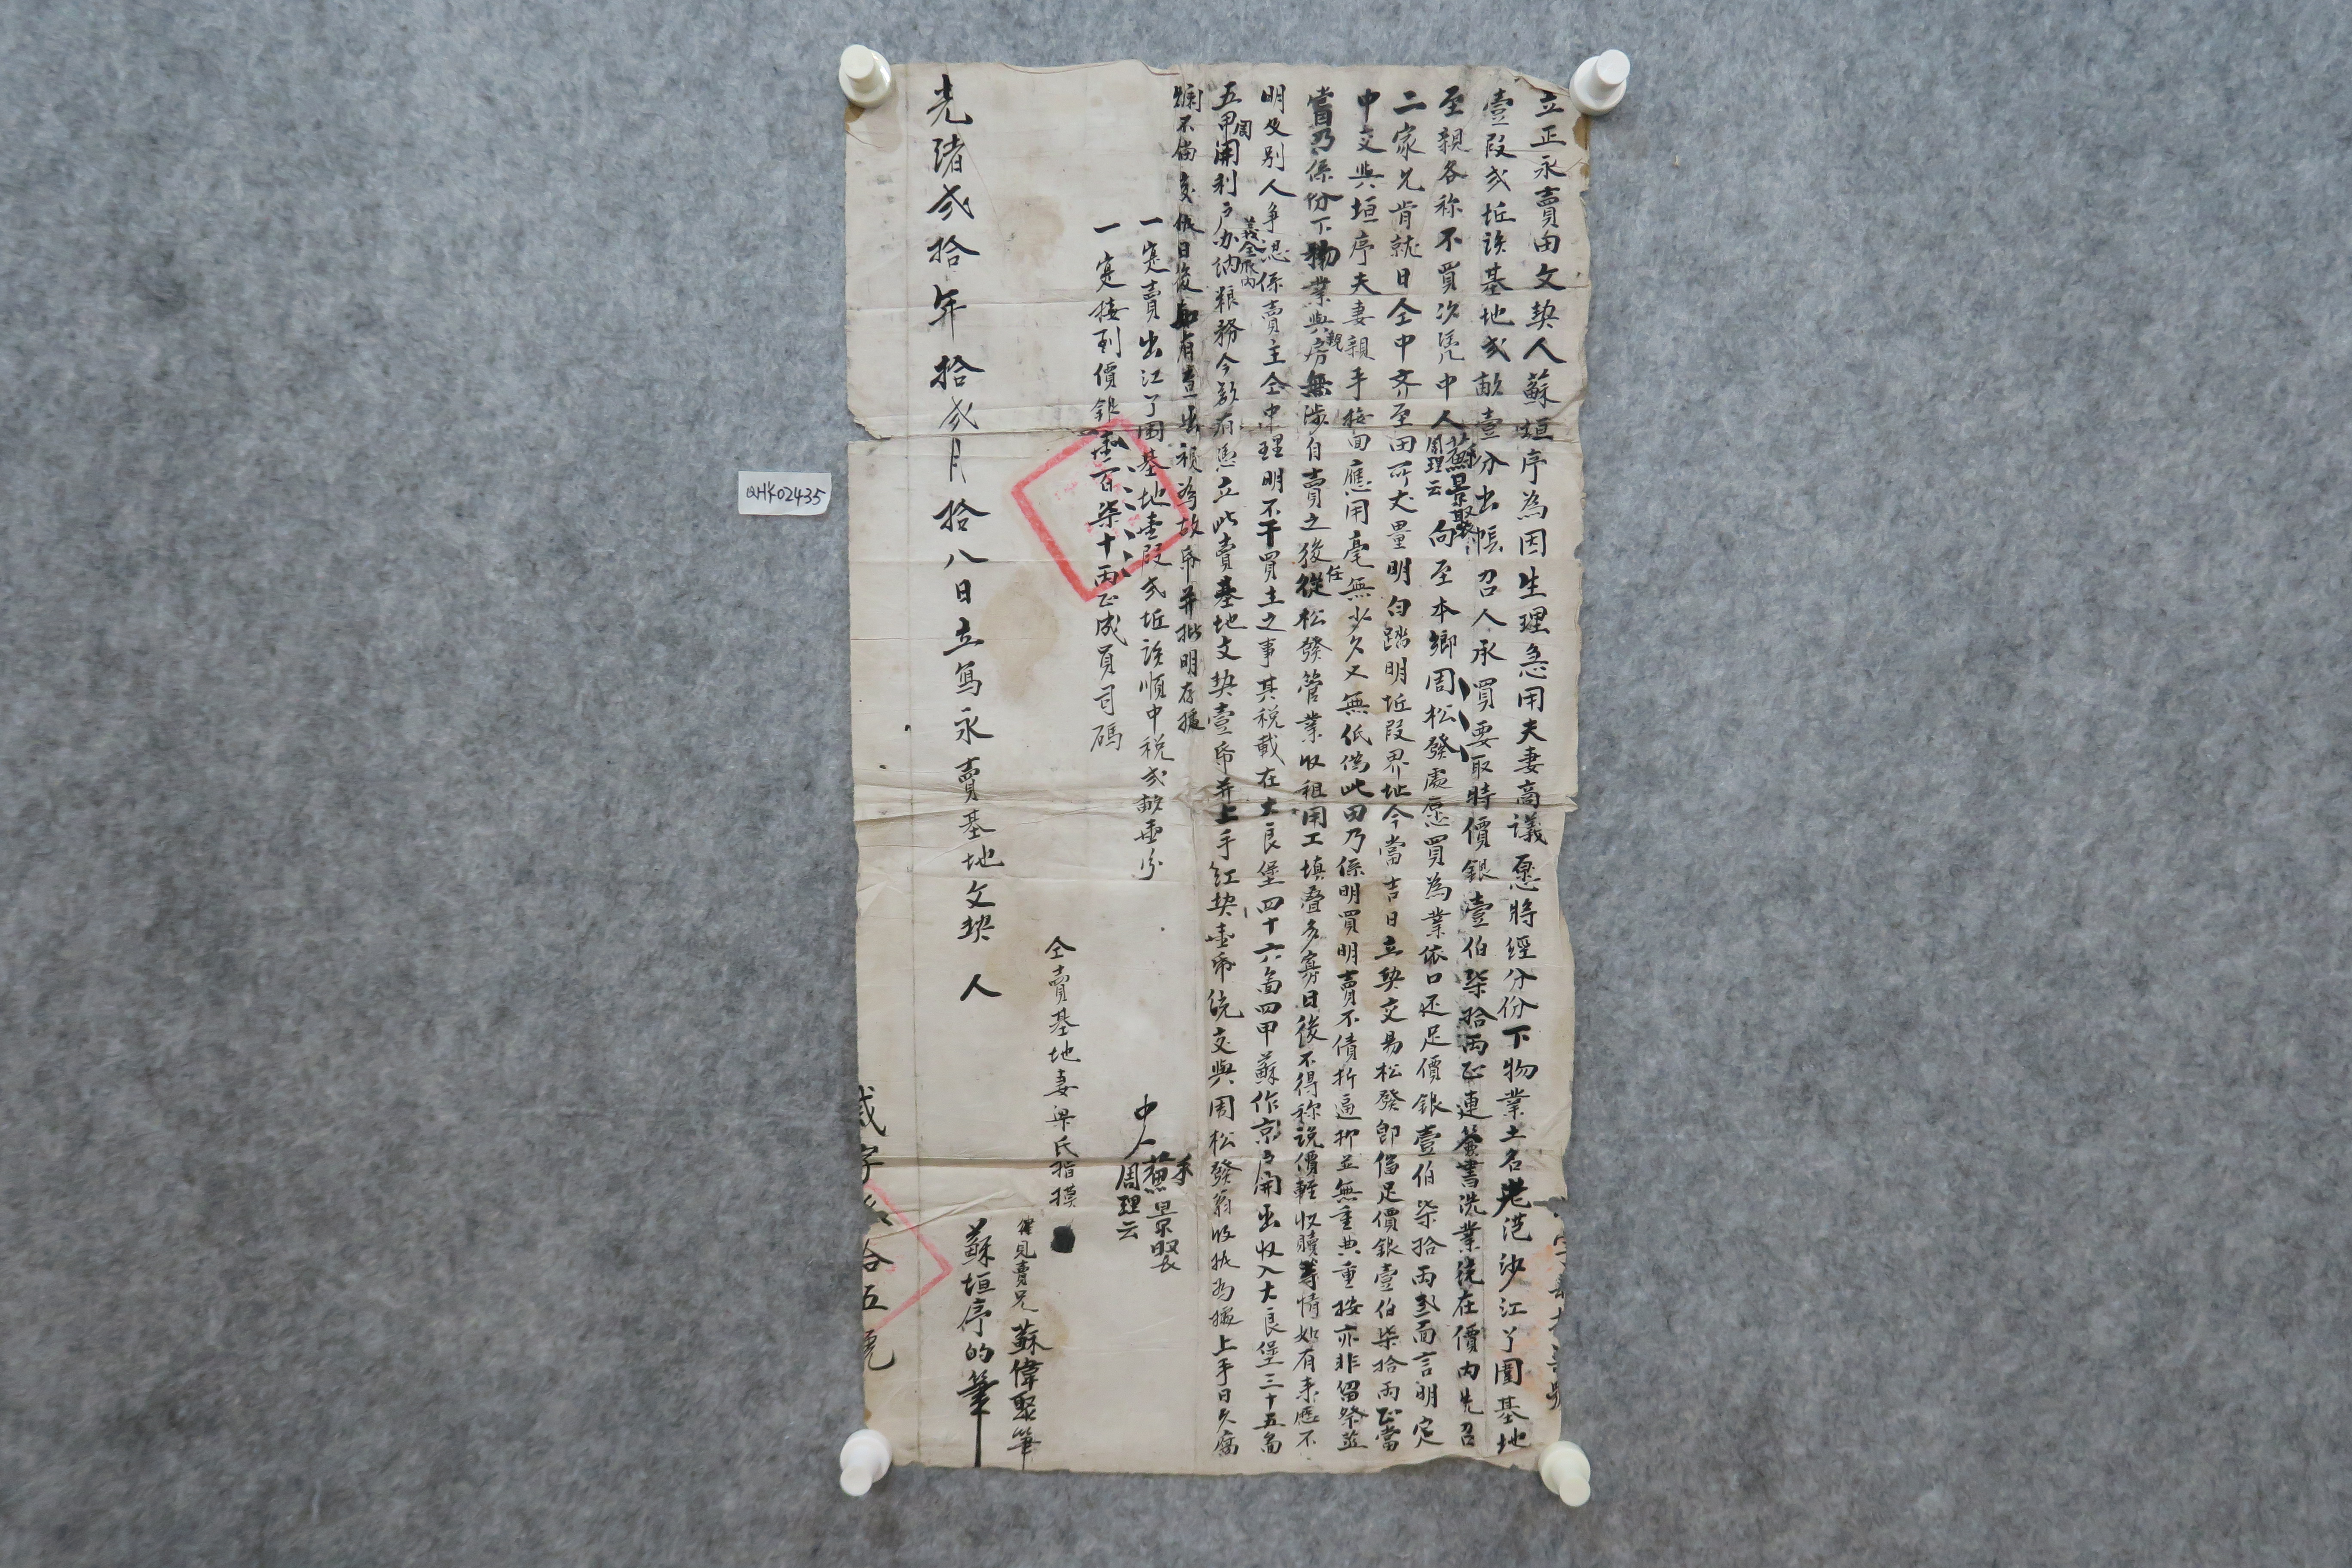 立正永賣田文契人蘇垣序為因生理急用夫妻商議愿將經分份下物業土名老范沙江丫圍基地
壹段弍坵該基地弍畝壹分出帳召人承買要取時價銀壹伯柒拾両正連簽書洗業統在價內先召
至親各称不買次凴中人蘇景聚周理云向至本鄉周松發處愿買為業依口还足價銀壹伯柒拾両叁面言明定
二家允肯就日仝中齐至田所丈量明白踏明坵段界址今當吉日立契交易松發即偹足價銀壹伯柒拾両正當
中交與垣序夫妻親手接回應用毫無少欠又無低偽此田乃係明買明賣不債折逼抑並無重典重按亦非留祭蒸
嘗乃係份下物業與親房無涉自賣之後任從松發管業收租用工填叠多寡日後不得称説價輕收贖等情如有来歷不
明及別人争認係賣主仝中理明不干買主之事其税載在大良堡四十六啚四甲蘇作京户開出收入大良堡三十五啚
五甲周開利户义全辰內办纳粮務今欲有憑立此賣基地文契壹帋并上手红契壹帋统交與周松發翁收执為據上手日久腐
爛不偹交依日後如有查出視為故帋并批明存據
一寔賣出江丫围基地壹段弍坵該順中税弍畝壹分
一寔接到價銀壹百柒十両正成員司碼
中人蘇景聚周理云
仝賣基地妻梁氏指摸
催見賣兄蘇偉聚筆
光緒弍拾年拾弍月拾八日立寫永賣基地文契人蘇垣序的筆
拾五號
QHK02435